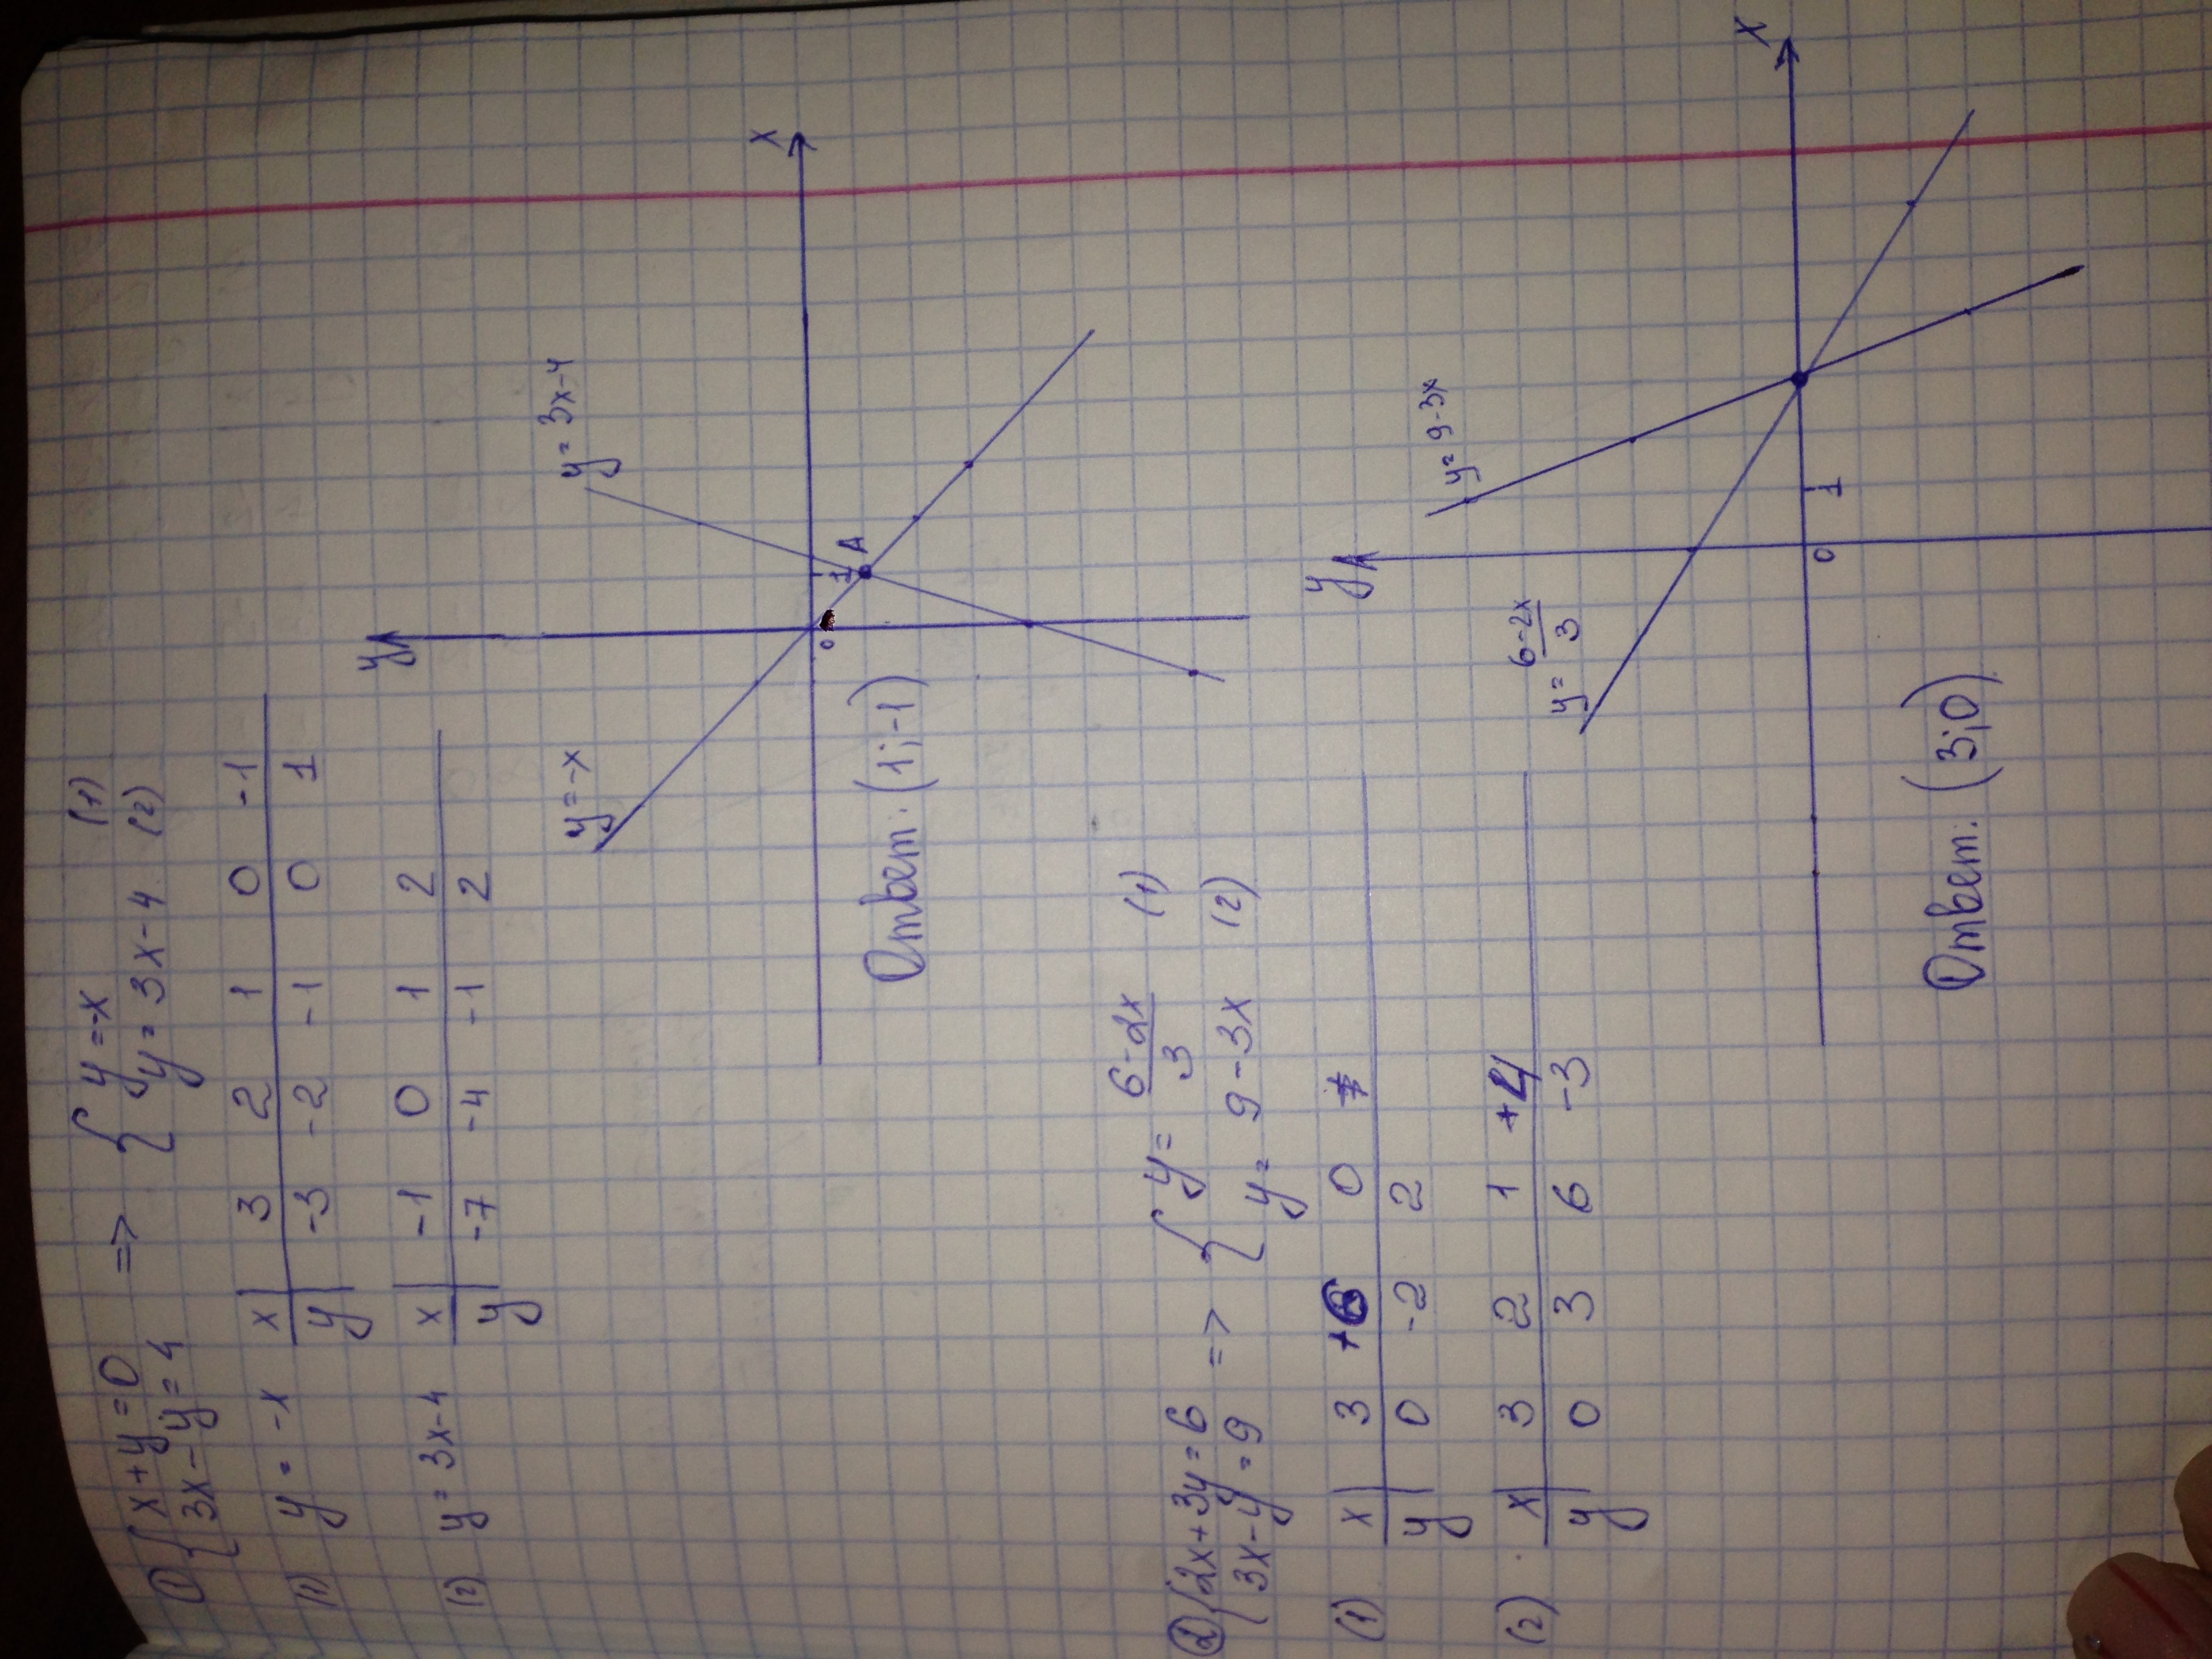 ① { x+y=0 => { y=-x (1)
3x-y=4 y=3x-4 (2)
(1) y=-x x | 3 2 1 0 -1
y | -3 -2 -1 0 1
(2) y=3x-4 x | -1 0 1 2
y | -7 -4 -1 2
y
y=-x
y=3x-4
0 1 A x
Ответ. (1;-1)
② { 2x+3y=6 => { y= 6-2x/3 (1)
3x-y=9 y= 9-3x (2)
(1) x | 3 +6 0
y | 0 -2 2
(2) x | 3 2 1 +4
y | 0 3 6 -3
y
y= 6-2x/3
y=9-3x
0 1 x
Ответ. (3;0)